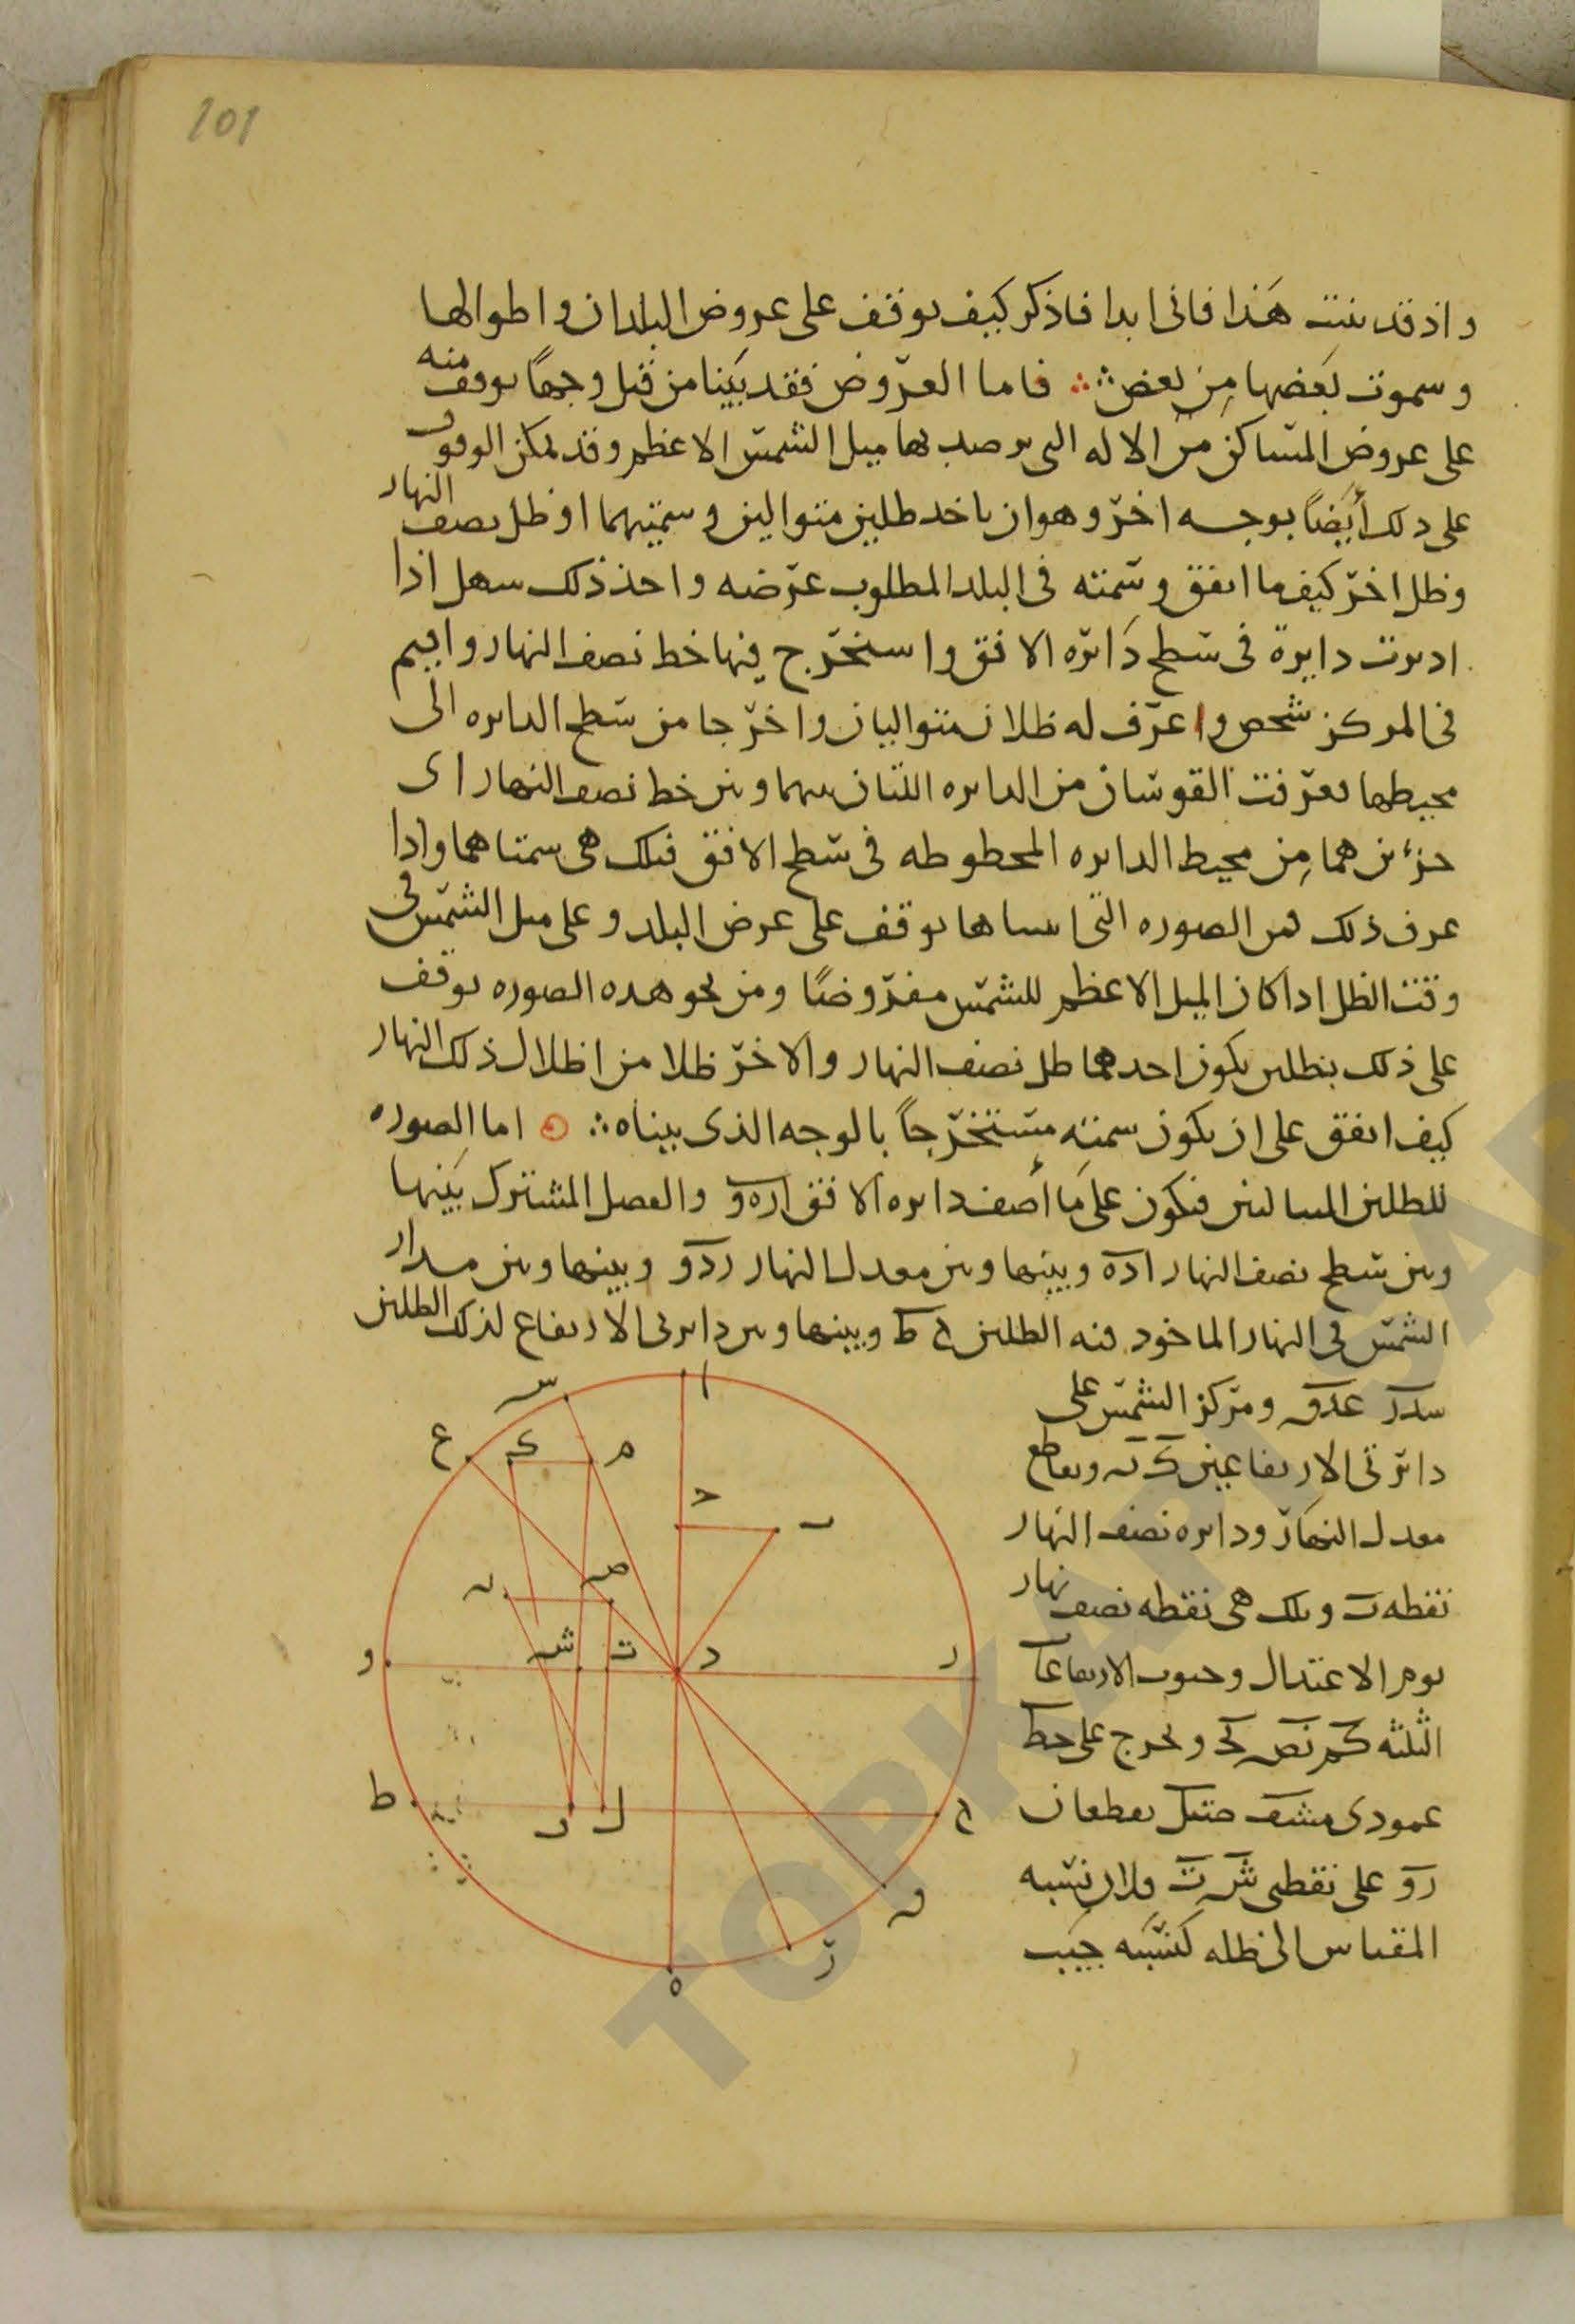 101
واذ قد بينت هَذا فانى ابدا فاذكر كيف يوقف على عروض البلدان واطوالها
وسموت بَعضها مِن بعض ∴ فاما العرُوض فقد بَيَّنا من قبل وجهاً يوقف منه
على عروض المساكن من الاله التى يرصد بها ميل الشمس الاعظم وقد يمكن الوقوف
على ذلك أيَضاً بوجه اخر وهو ان ياخذ ظلين متواليين وسمتيهما او ظل نصف النهار
وظل اخر كيف ما اتفق وسمته فى البلد المطلوب عرضه واخذ ذلك سهل اذا
اديرت دايرة فى سطح دَائره الافق واستخرج فيها خط نصف النهار واقيم
فى المركز شخص واعرف له ظلان متواليان واخرجا من سطح الدايره الى
محيطها فعرفت القوسان من الدايره اللتان بينهما وبين خط نصف النهار اى
جزئين هما مِن محيط الدايره المخطوطه فى سطح الافق فتلك هى سمتاهما واذا
عرف ذلك فمن الصوره التى اساها يوقف على عرض البلد وعلى ميل الشمس فى
وقت الظل اذا كان الميل الاعظم للشمس مفروضاً ومن نحو هذه الصوره يوقف
على ذلك بظلين يكون احدهما ظل نصف النهار والاخر ظلا من اظلال ذلك النهار
كيف اتفق على ان يكون سمته مستخرجاً بالوجه الذى بيناه ∴ اما الصوره
للظلين المتتاليين فتكون على مَا أصف دايره الافق اره و والفصل المشترك بَينها
وبين سطح نصف النهار اده وبينها وبين معدل النهار ردو وبينها وبين مدار
الشمس فى النهار الماخود فيه الظلين ح ط وبينها وبين دايرتى الارتفاع لذلك الظلين
سدر عدق ومركز الشمس على
دائرتى الارتفاعين ك ن وتقاطع
معدل النهار ودايره نصف النهار
نقطه ب وتلك هى نقطه نصف نهار
يوم الاعتدال وجيوب الارتفاعات
الثلثه كم نص بح ونخرج على خط
عمودى مشف صتل يقطعان
رو على نقطى ش ت فلان نسبه
المقياس الى ظله كنسبه جيب
ا
س
ع
ك
م
ح
ب
ن
ص
و
ش
ت
د
ر
ط
ف
ل
ح
ق
ر
ه
TOPKAPI SA